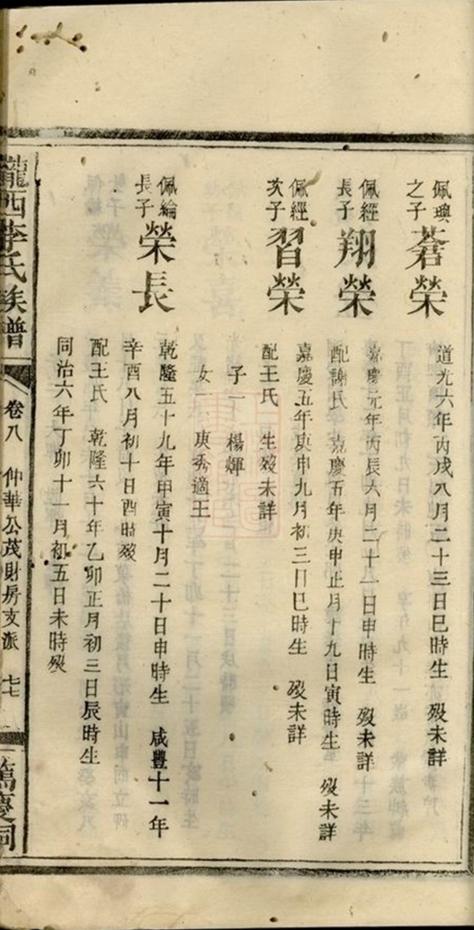 佩璵之子 蒼榮
道光六年丙戌八月二十三日巳時生 歿未詳
佩經長子 翔榮
嘉慶元年丙辰六月二十一日申時生 歿未詳
配謝氏 嘉慶五年庚申正月十九日寅時生 歿未詳
佩經次子 習榮
嘉慶五年庚申九月初三日巳時生 歿未詳
配王氏 生歿未詳
子一 楊輝
女一 庚秀適王
佩綸長子 榮長
乾隆五十九年甲寅十月二十日申時生 咸豐十一年
辛酉八月初十日酉時歿
配王氏 乾隆六十年乙卯正月初三日辰時生
同治六年丁卯十一月初五日未時歿
隴西李氏族譜 卷八 仲華公茂財房支派 七七 萬慶祠